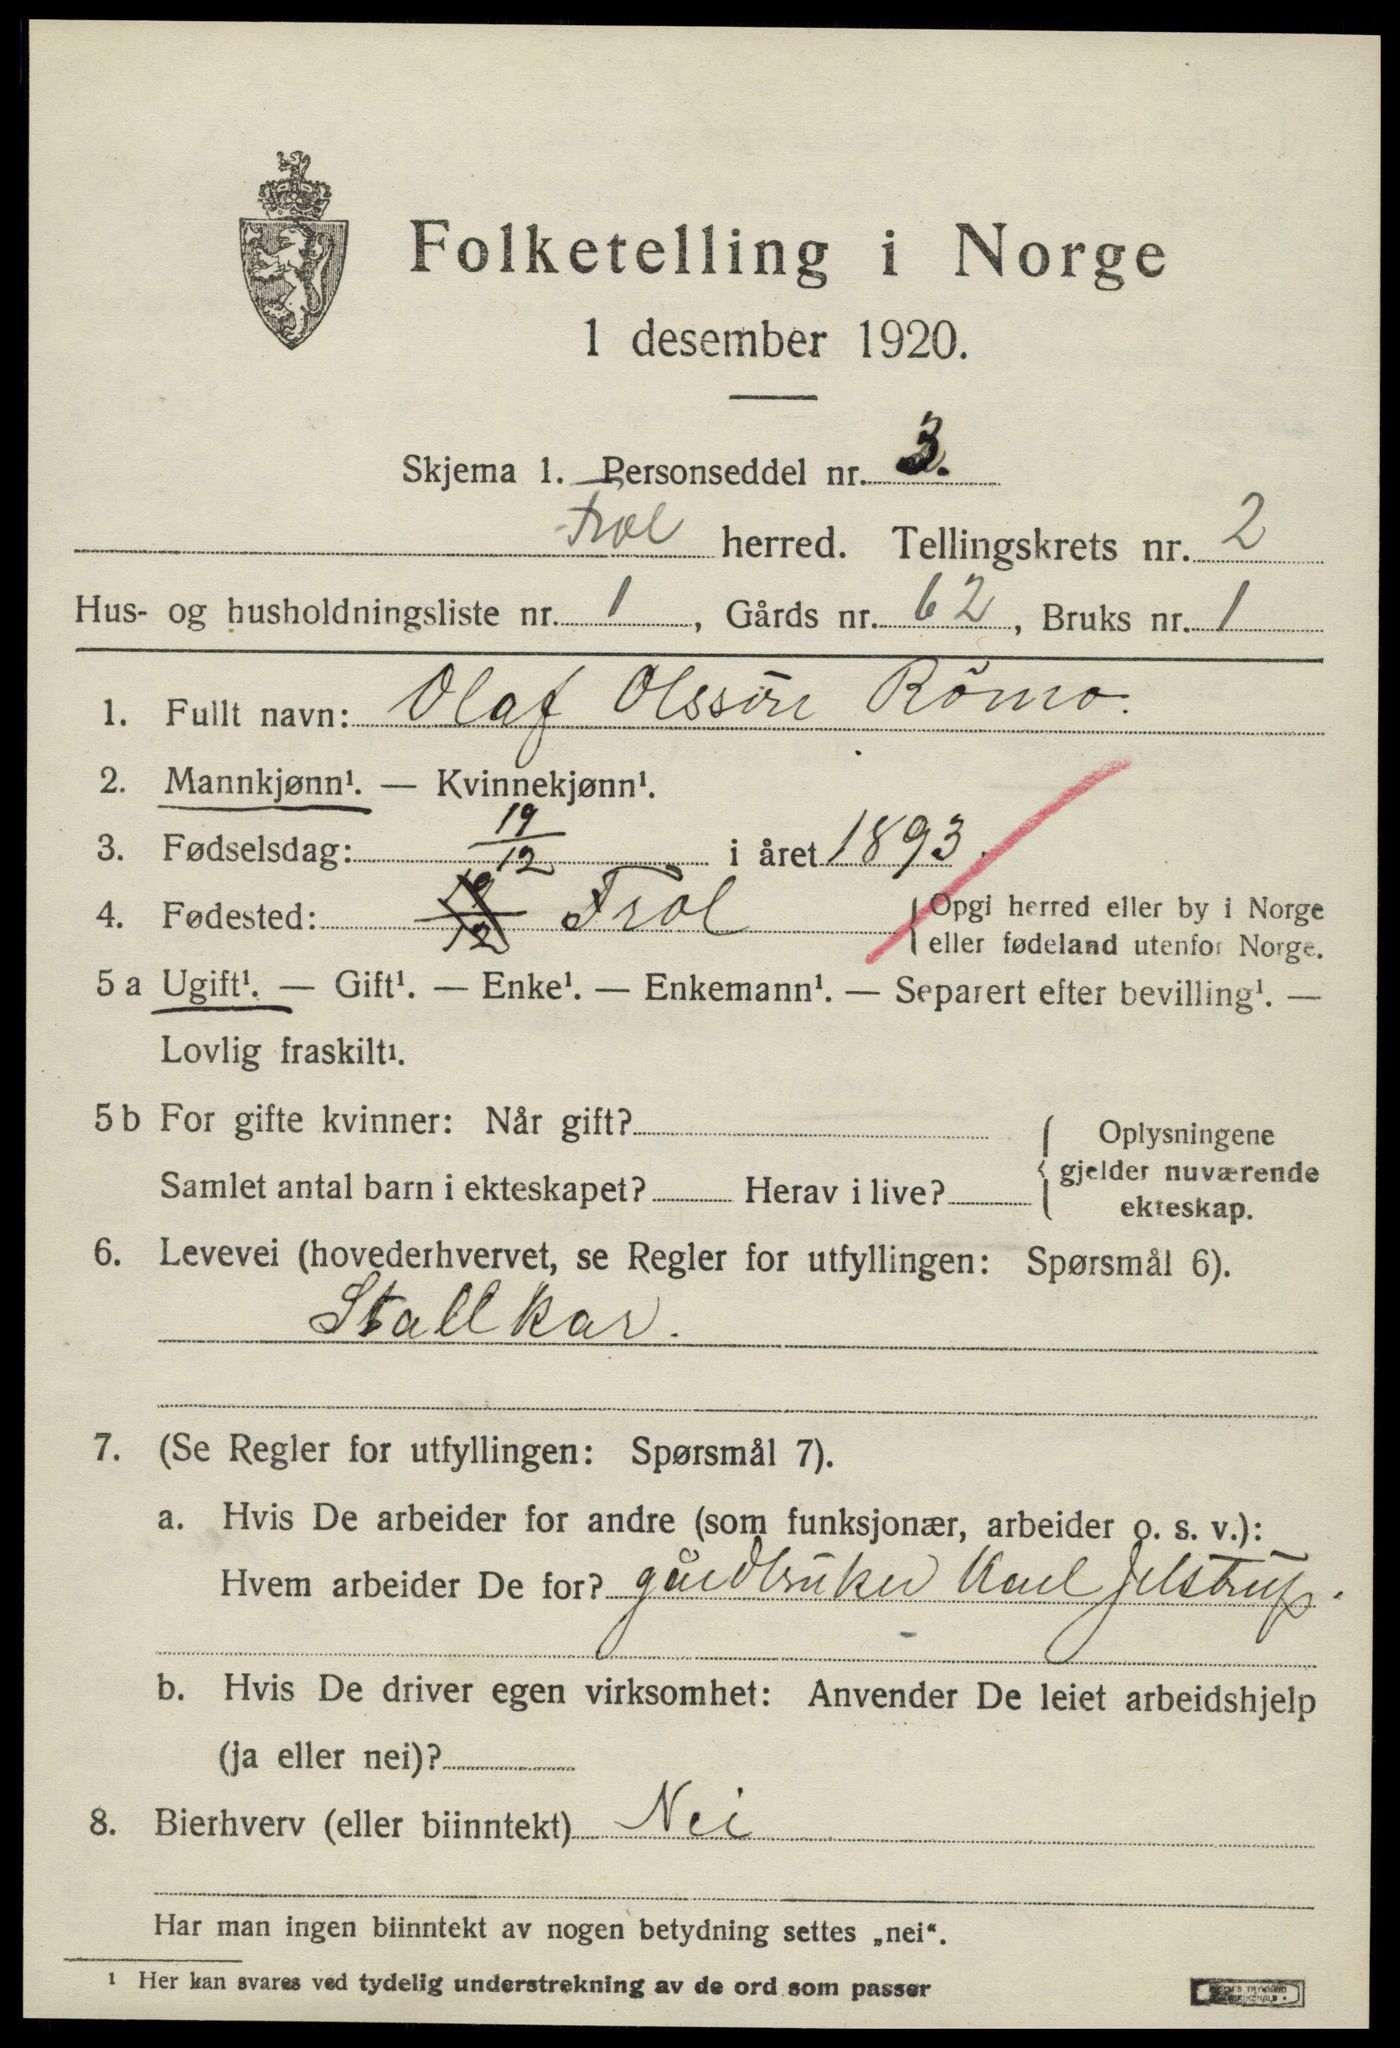 Folketelling i Norge
1 desember 1920.
Skjema 1. Personseddel nr. 3.
Frol herred. Tellingskrets nr. 2
Hus- og husholdningsliste nr. 1, Gårds nr. 62, Bruks nr. 1
1. Fullt navn: Olaf Olssøn Rømo.
2. Mannkjønn¹. — Kvinnekjønn¹.
3. Fødselsdag: 19/12 i året 1893.
4. Fødested: 19/12 Frol { Opgi herred eller by i Norge
eller fødeland utenfor Norge.
5 a Ugift¹. — Gift¹. — Enke¹. — Enkemann¹. — Separert efter bevilling¹. —
Lovlig fraskilt¹.
5 b For gifte kvinner: Når gift? { Oplysningene
gjelder nuværende
Samlet antal barn i ekteskapet? Herav i live?
ekteskap.
6. Levevei (hovederhvervet, se Regler for utfyllingen: Spørsmål 6).
Stallkar.
7. (Se Regler for utfyllingen: Spørsmål 7).
a. Hvis De arbeider for andre (som funksjonær, arbeider o. s. v.):
Hvem arbeider De for? gårdbruker Karl Jelstrup.
b. Hvis De driver egen virksomhet: Anvender De leiet arbeidshjelp
(ja eller nei)?
8. Bierhverv (eller biinntekt) Nei
Har man ingen biinntekt av nogen betydning settes „nei“.
¹ Her kan svares ved tydelig understrekning av de ord som passer